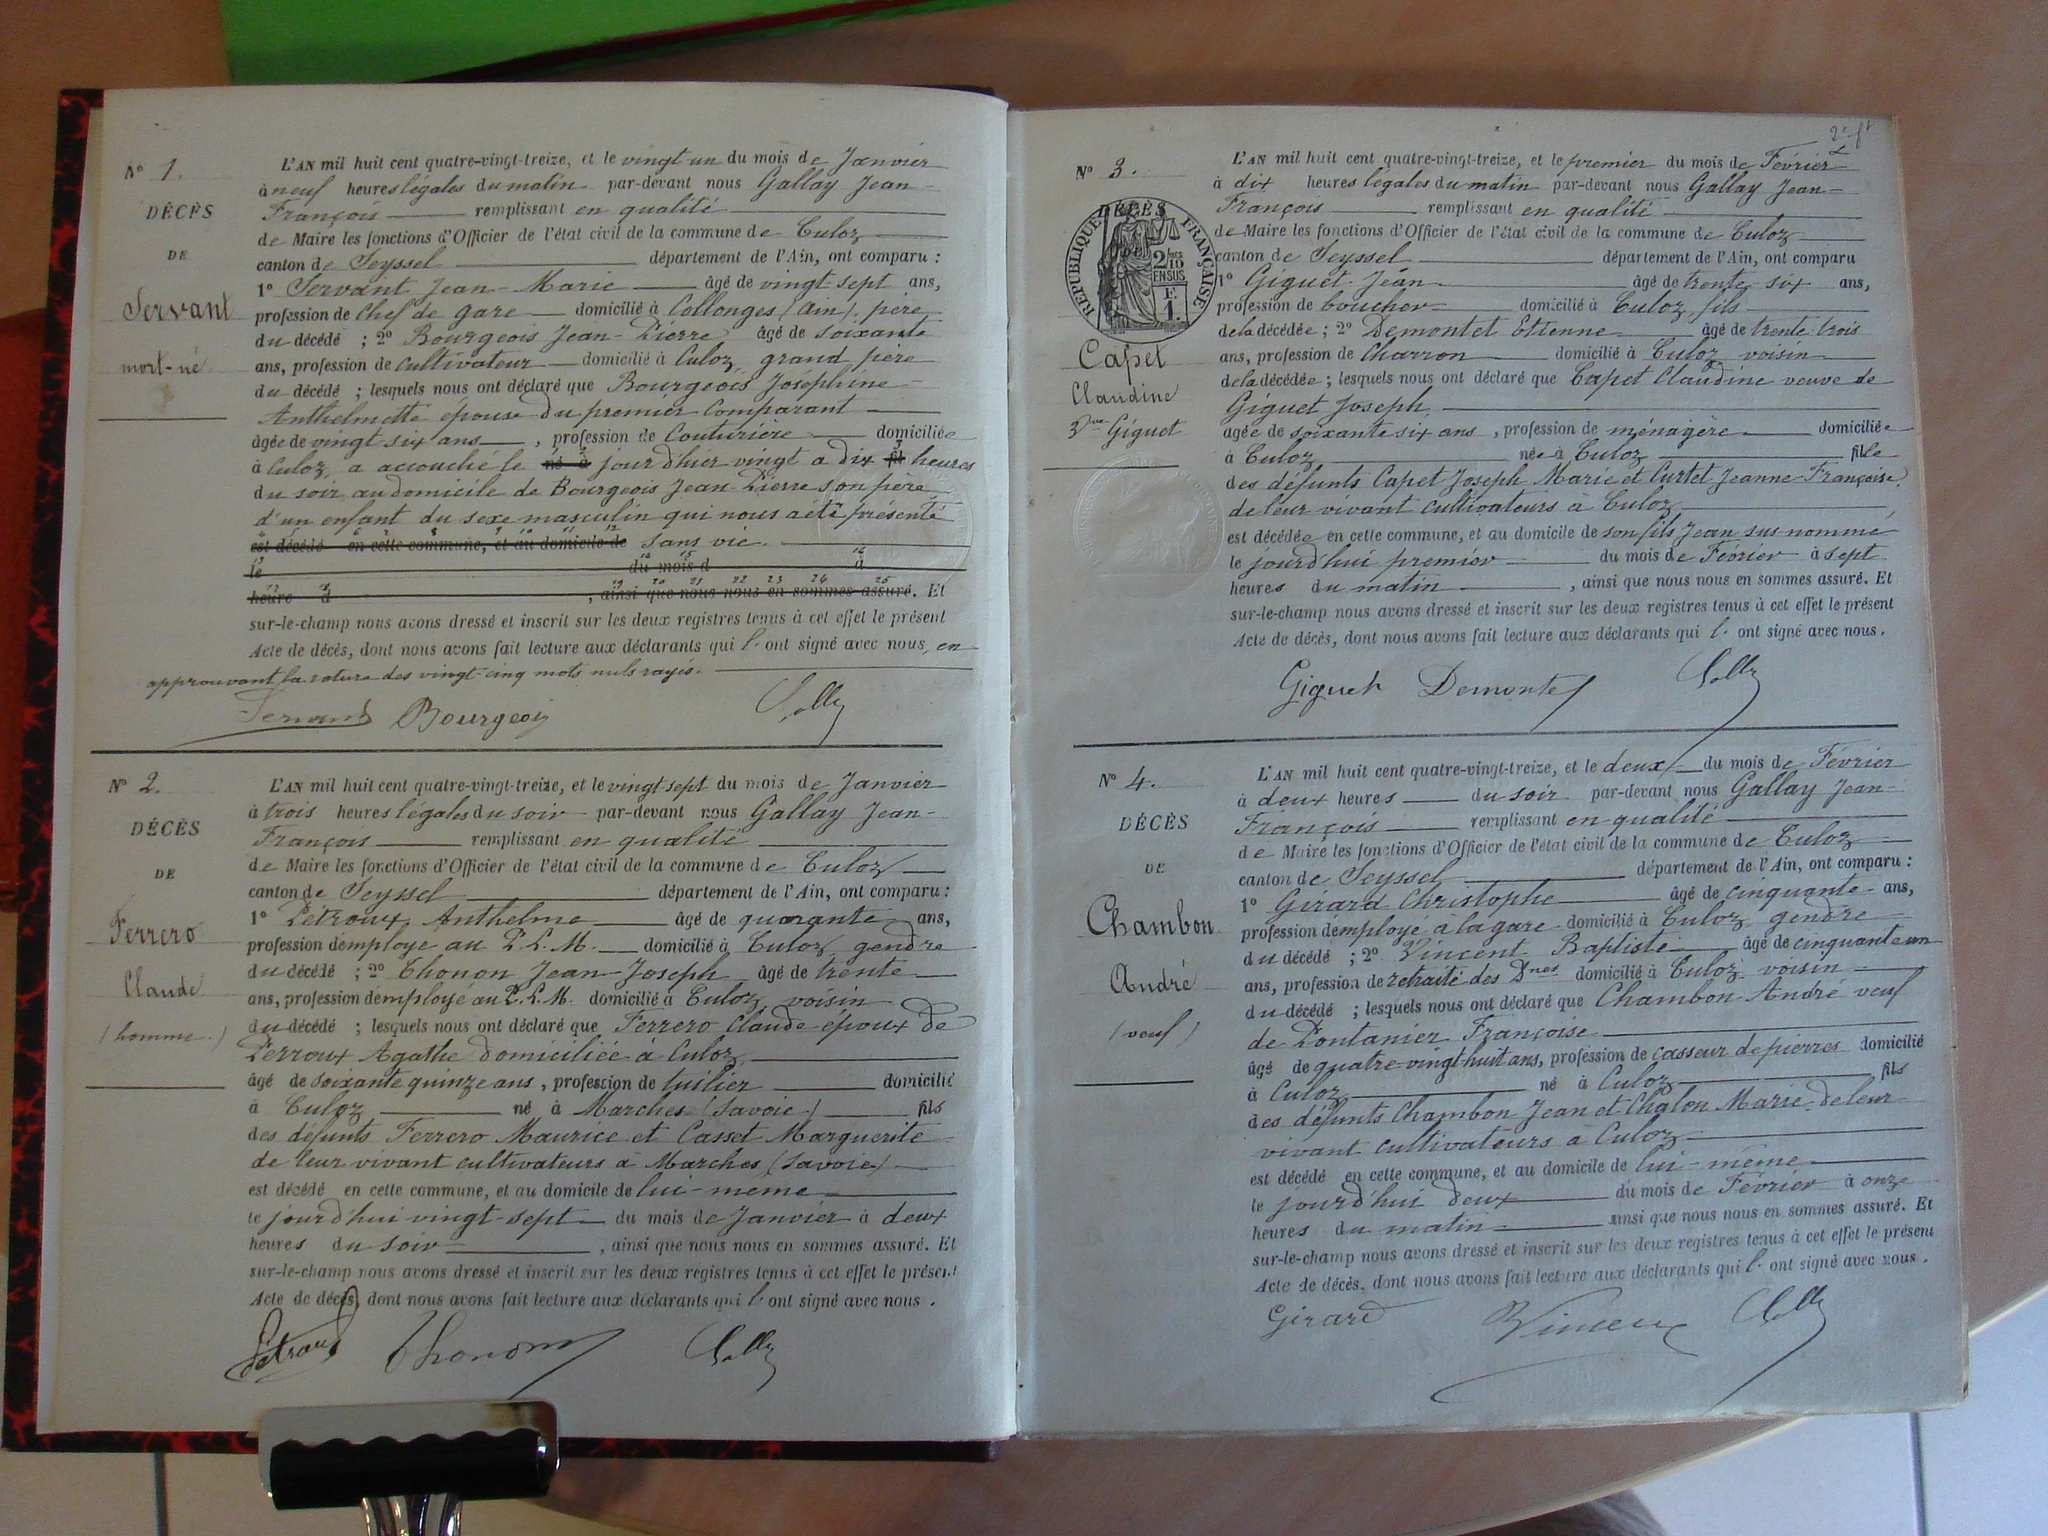 N° 1.
DÉCÈS
DE
Servant
mort-né
L'AN mil huit cent quatre-vingt-treize, et le vingt un du mois de Janvier
à neuf heures légales du matin par-devant nous Gallay Jean-
François remplissant en qualité
de Maire les fonctions d'Officier de l'état civil de la commune de Culoz
canton de Seyssel département de l'Ain, ont comparu :
1° Servant Jean-Marie âgé de vingt sept ans,
profession de Chef de gare domicilié à Collonges (Ain), père
du décédé ; 2° Bourgeois Jean-Pierre âgé de soixante
ans, profession de cultivateur domicilié à Culoz, grand père
du décédé ; lesquels nous ont déclaré que Bourgeois Joséphine
Anthelmette épouse du premier comparant
âgée de vingt six ans, profession de Couturière domiciliée
à Culoz, a accouché le né à jour d'hier vingt à dix fil heures
du soir au domicile de Bourgeois Jean-Pierre son père
d'un enfant du sexe masculin qui nous a été présenté
est décédé en cette commune, et au domicile de sans vie.
le du mois d à
heure d , ainsi que nous nous en sommes assuré. Et
sur-le-champ nous avons dressé et inscrit sur les deux registres tenus à cet effet le présent
Acte de décès, dont nous avons fait lecture aux déclarants qui l'ont signé avec nous, en
approuvant la rature des vingt-cinq mots nuls rayés.
Servant Bourgeois Gallay
N° 2.
DÉCÈS
DE
Ferrero
Claude
(homme.)
L'AN mil huit cent quatre-vingt-treize, et le vingt sept du mois de Janvier
à trois heures légales du soir par-devant nous Gallay Jean-
François remplissant en qualité
de Maire les fonctions d'Officier de l'état civil de la commune de Culoz
canton de Seyssel département de l'Ain, ont comparu :
1° Pétroux Anthelme âgé de quarante ans,
profession d'employé au P. L. M. domicilié à Culoz gendre
du décédé ; 2° Thonon Jean-Joseph âgé de trente
ans, profession d'employé au P. L. M. domicilié à Culoz, voisin
du décédé ; lesquels nous ont déclaré que Ferrero Claude époux de
Perroux Agathe domiciliée à Culoz
âgé de soixante quinze ans, profession de tuilier domicilié
à Culoz né à Marches (Savoie) fils
des défunts Ferrero Maurice et Casset Marguerite
de leur vivant cultivateurs à Marches (Savoie)
est décédé en cette commune, et au domicile de lui-même
le jourd'hui vingt-sept du mois de Janvier à deux
heures du soir , ainsi que nous nous en sommes assuré. Et
sur-le-champ nous avons dressé et inscrit sur les deux registres tenus à cet effet le présent
Acte de décès, dont nous avons fait lecture aux déclarants qui l'ont signé avec nous.
Petroux Thonon Gallay
2e ft
N° 3.
DÉCÈS
RÉPUBLIQUE FRANÇAISE
2/10
EN SUS
1 F.
Capet
Claudine
Vve Giguet
L'AN mil huit cent quatre-vingt-treize, et le premier du mois de Février
à dix heures légales du matin par-devant nous Gallay Jean-
François remplissant en qualité
de Maire les fonctions d'Officier de l'état civil de la commune de Culoz
canton de Seyssel département de l'Ain, ont comparu
1° Giguet Jean âgé de trente six ans,
profession de boucher domicilié à Culoz, fils
de la décédée ; 2° Demontet Etienne âgé de trente trois
ans, profession de Charron domicilié à Culoz voisin
de la décédée ; lesquels nous ont déclaré que Capet Claudine veuve de
Giguet Joseph,
âgée de soixante six ans, profession de ménagère domiciliée
à Culoz née à Culoz fille
des défunts Capet Joseph Marie et Curtet Jeanne-Françoise,
de leur vivant cultivateurs à Culoz
est décédée en cette commune, et au domicile de son fils Jean sus nommé
le jourd'hui premier du mois de Février à sept
heures du matin , ainsi que nous nous en sommes assuré. Et
sur-le-champ nous avons dressé et inscrit sur les deux registres tenus à cet effet le présent
Acte de décès, dont nous avons fait lecture aux déclarants qui l'ont signé avec nous.
Giguet Demontet Gallay
N° 4.
DÉCÈS
DE
Chambon
André
(veuf)
L'AN mil huit cent quatre-vingt-treize, et le deux du mois de Février
à deux heures du soir par-devant nous Gallay Jean-
François remplissant en qualité
de Maire les fonctions d'Officier de l'état civil de la commune de Culoz
canton de Seyssel département de l'Ain, ont comparu :
1° Girard Christophe âgé de cinquante ans,
profession d'employé à la gare domicilié à Culoz, gendre
du décédé ; 2° Vincent Baptiste âgé de cinquante un
ans, profession de retraité des Dnes domicilié à Culoz voisin
du décédé ; lesquels nous ont déclaré que Chambon André veuf
de Pontanier Françoise
âgé de quatre vingt-huit ans, profession de casseur de pierres domicilié
à Culoz né à Culoz fils
des défunts Chambon Jean et Chalon Marie, de leur
vivant cultivateurs à Culoz
est décédé en cette commune, et au domicile de lui-même
le jourd'hui deux du mois de Février à onze
heures du matin ainsi que nous nous en sommes assuré. Et
sur-le-champ nous avons dressé et inscrit sur les deux registres tenus à cet effet le présent
Acte de décès, dont nous avons fait lecture aux déclarants qui l'ont signé avec nous.
Girard BVincent Gallay